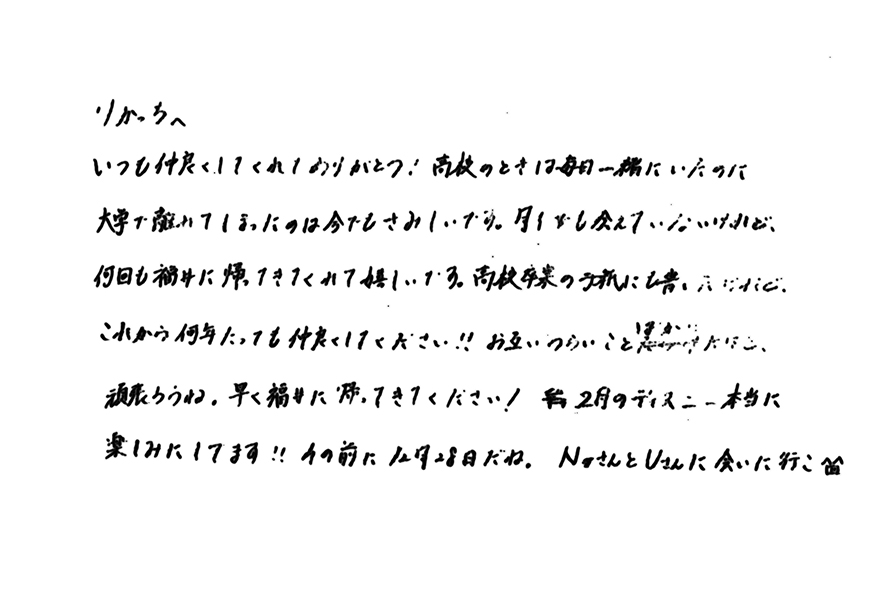 りかっちへ
いつも仲良くしてくれてありがとう!高校のときは毎日一緒にいたのに
大学で離れてしまったのは今でもさみしいです。月イチも会えていないけれど、
何回も福井に帰ってきてくれて嬉しいです。高校卒業の手紙にも書いたけれど、
これから何年たっても仲良くしてください!!お互いつらいことばかりだけど、
頑張ろうね。早く福井に帰ってきてください! 2月のディズニー本当に
楽しみにしてます!!その前に12月28日だね。 NgさんとUさんに会いに行こ